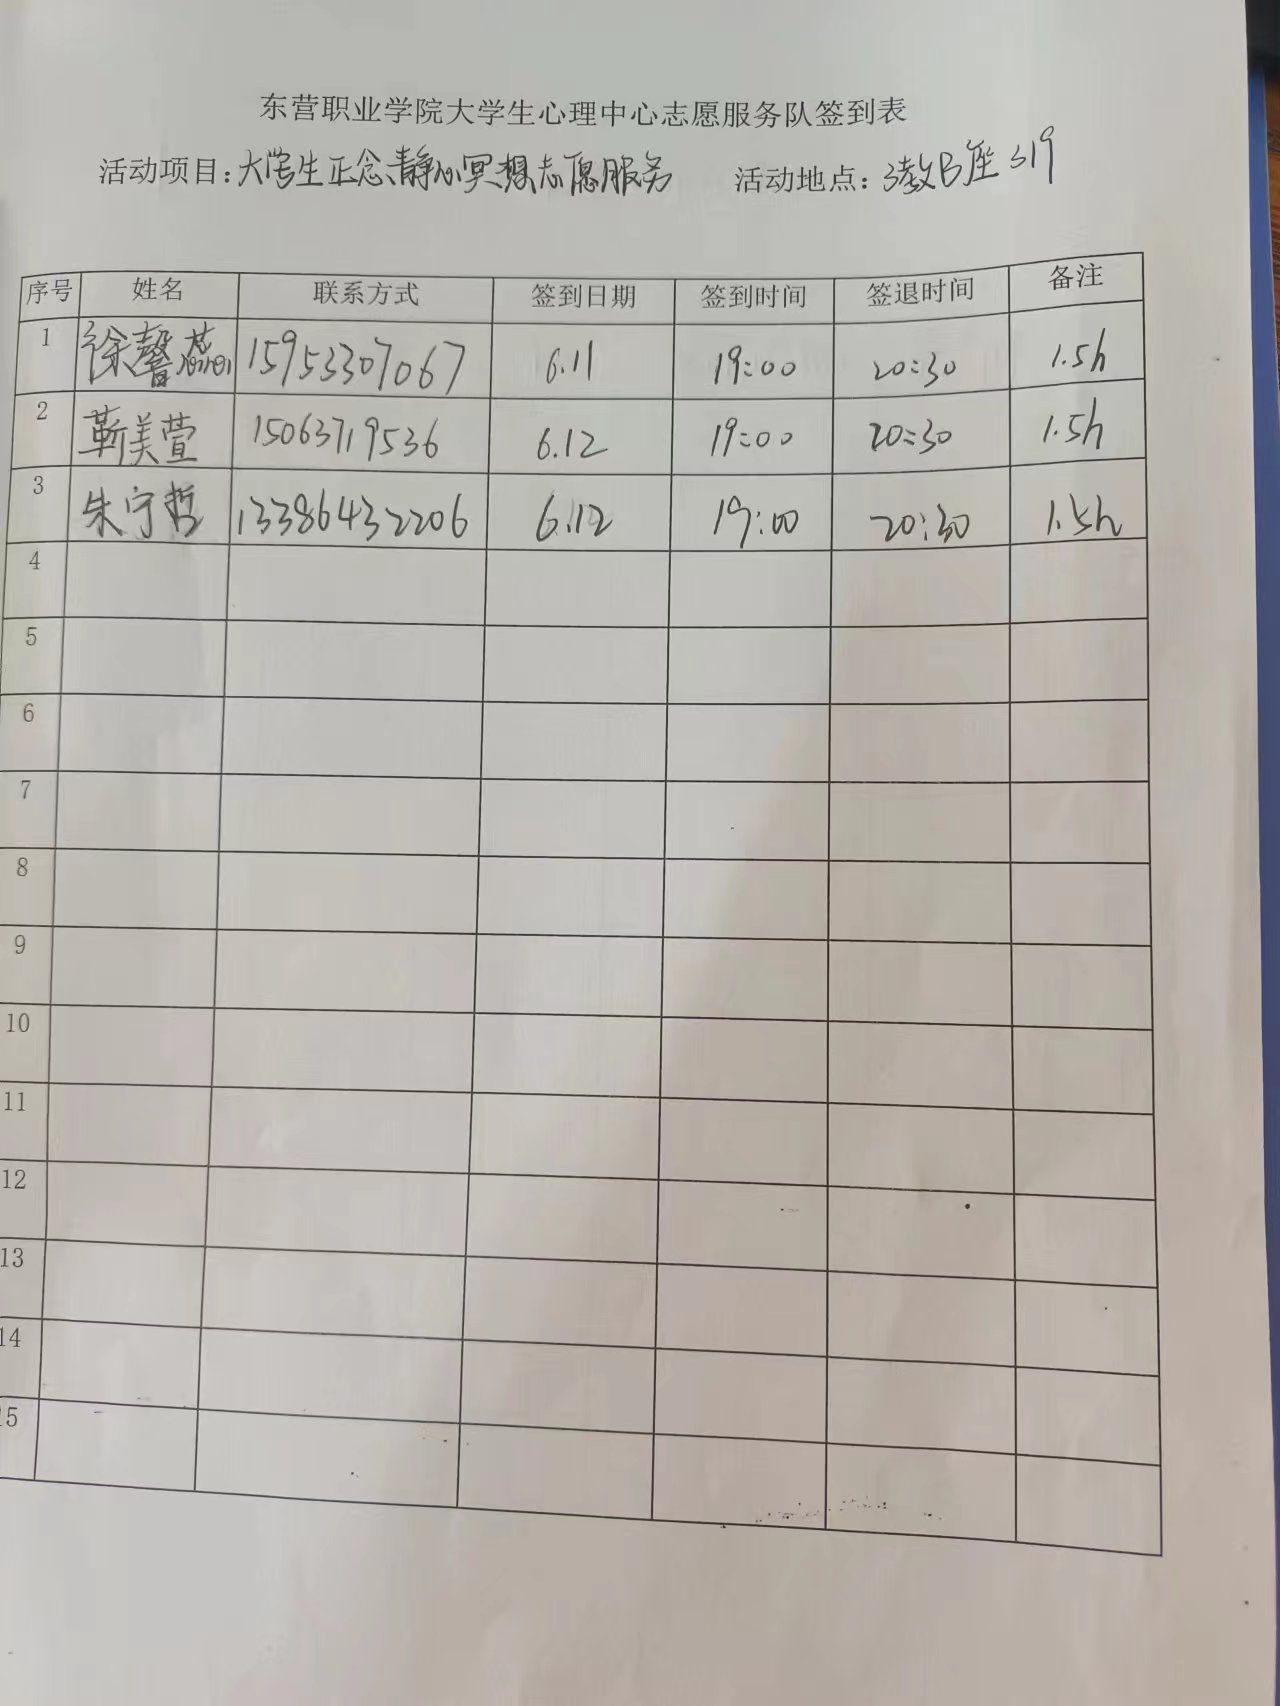 东营职业学院大学生心理中心志愿服务队签到表
活动项目：大学生正念静心冥想志愿服务 活动地点：3教B座319
序号 姓名 联系方式 签到日期 签到时间 签退时间 备注
1 徐馨蕊 15953307067 6.11 19:00 20:30 1.5h
2 靳美萱 15063719536 6.12 19:00 20:30 1.5h
3 朱宁哲 13386432206 6.12 19:00 20:30 1.5h
4
5
6
7
8
9
10
11
12
13
14
15